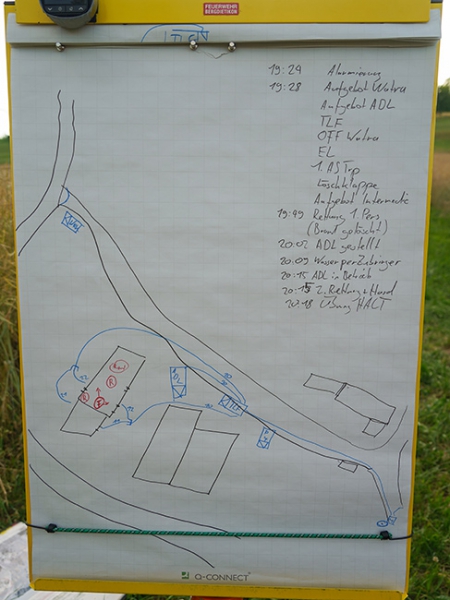 FEUERWEHR
BERGDIETIKON
19:24 Alarmierung
19:28 Aufgebot Wolra
Aufgebot ADL
TLF
OFF Wolra
EL
1. AS Trp
Löschklappe
Aufgebot
19:49 Rettung 1. Pers
(Brand gelöscht)
20:02 ADL gestellt
20:09 Wasser per Zubringer
20:15 ADL in Betrieb
20:15 2. Rettung
20:18 Übung HALT
ADL
TLF
Q-CONNECT